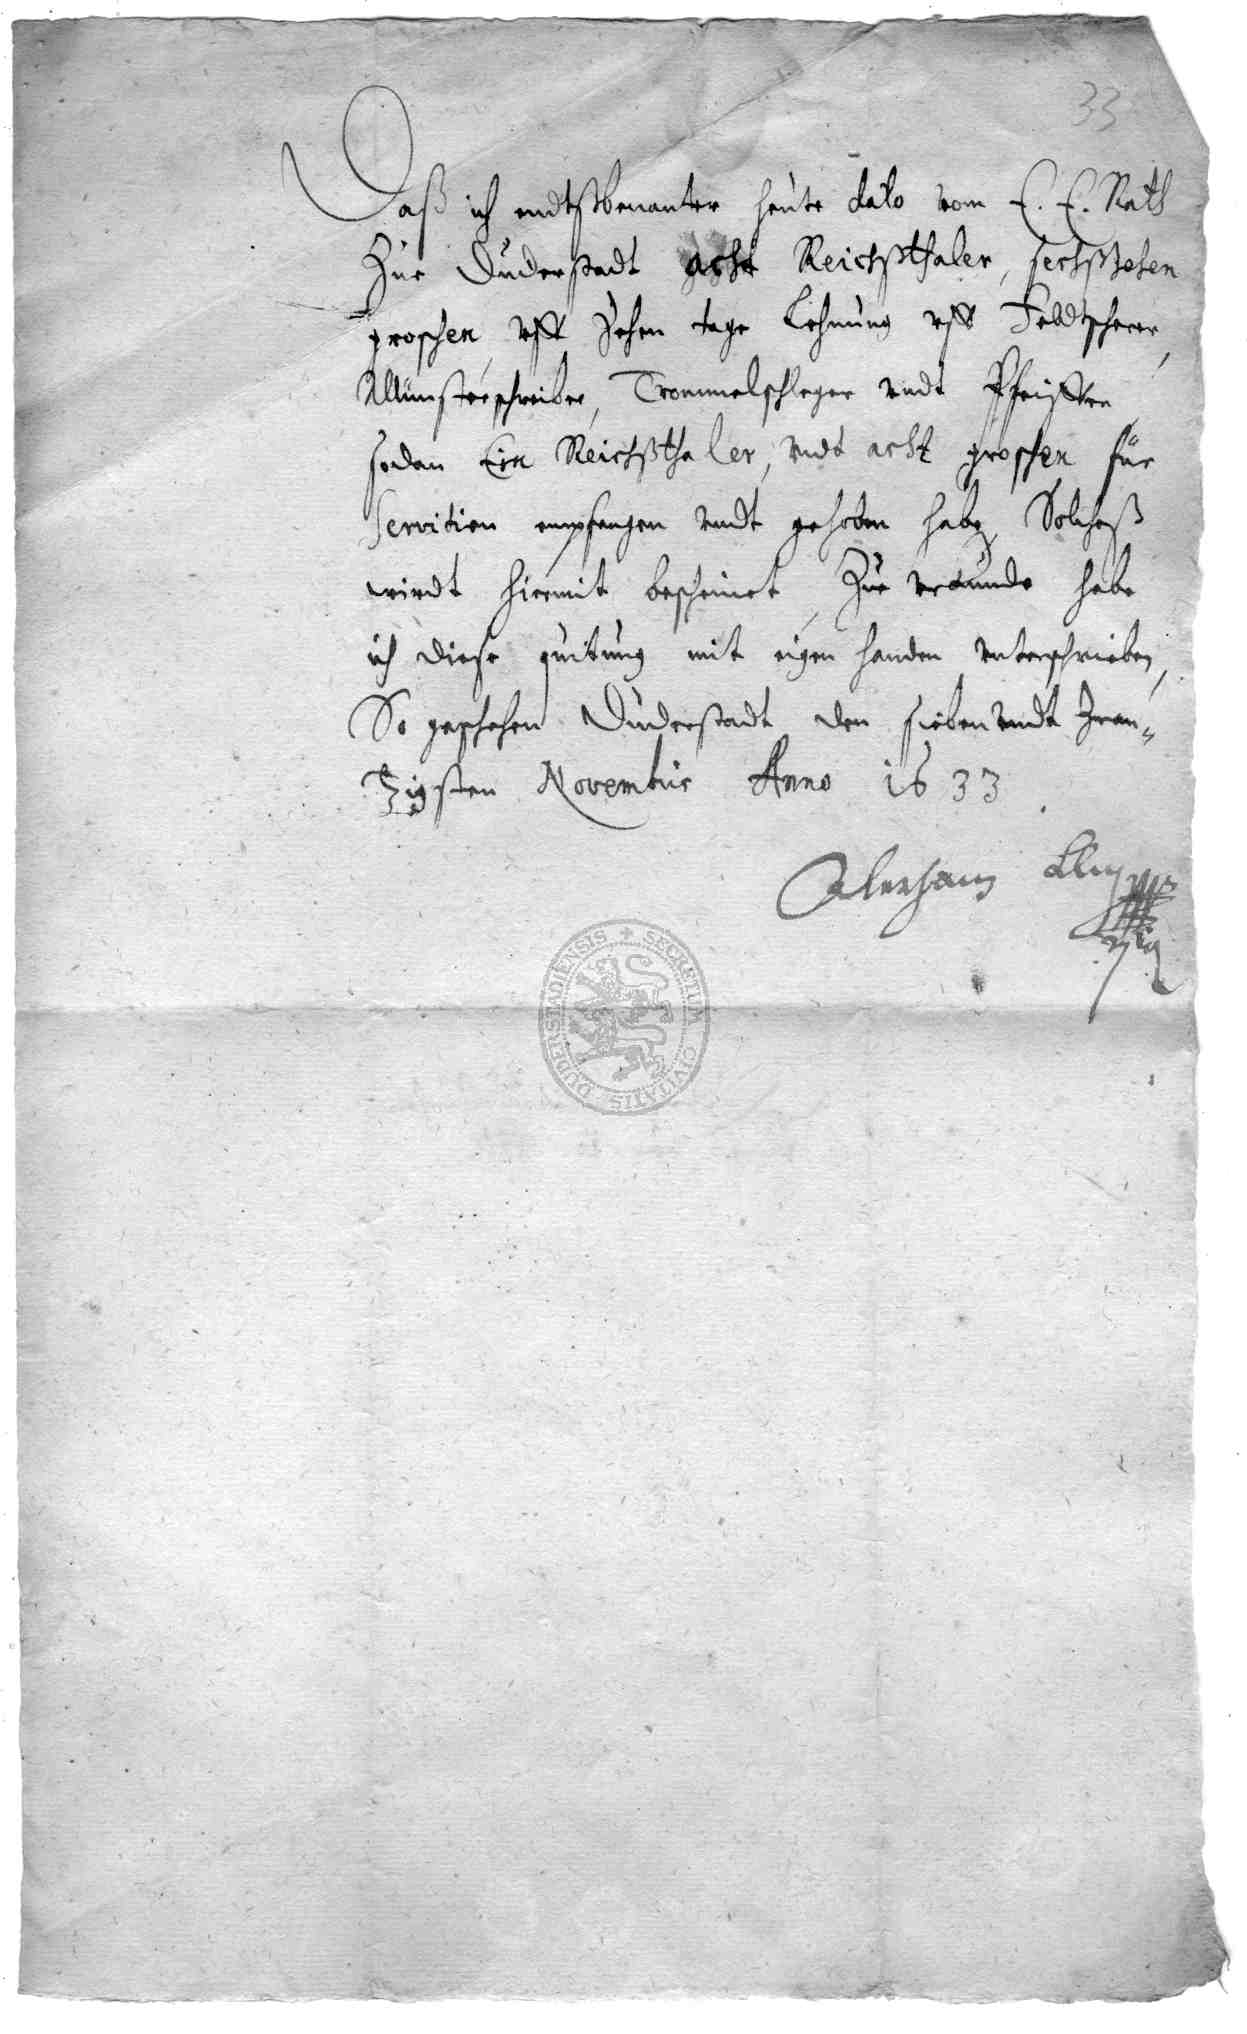 33
Daß ich endtßbenanter heute dato vom E. E. Rath
Zue Duderstadt acht Reichßthaler, sechßzehen
groschen, vff Zehen tage Lehnung vff Feldtscherer,
Münsterschreiber, Trommelschleger vndt Pfeiffer
sodan Ein Reichßthaler, vndt acht groschen für
Servitien empfangen vndt gehoben habe, Solcheß
wirdt hiermit bescheinet, Zue vrkunde habe
ich diese quitung mit eigen handen unterschrieben,
So geschehen Duderstadt den sieben vndt Zwan„
Zigsten Novembris Anno 1633.
SECRETUM CIVITATIS DUDERSTADIENSIS